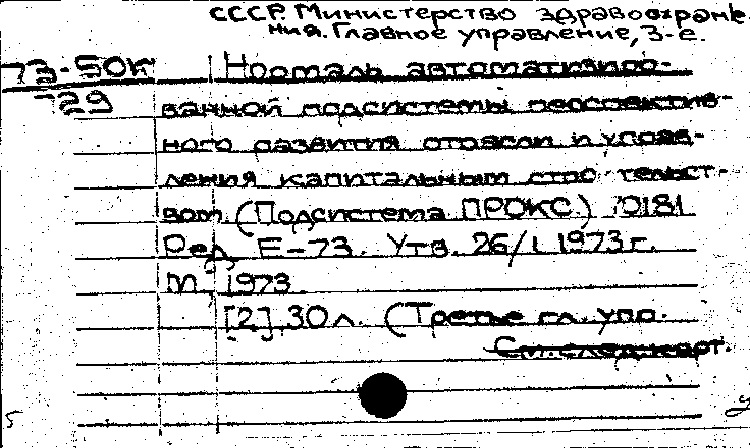 СССР. Министерство здравоохране-
ния. Главное управление, 3-е.
73-50К Нормаль автоматизиро-
729 ванной подсистемы перспектив-
ного развития отрасли и управ-
ления капитальным строительст-
вом (Подсистема ПРОКС.) 70181
Ред. Е-73. Утв. 26/I 1973г.
М., 1973.
[2], 30 л. (Третье гл. упр.
См. след. карт.
5